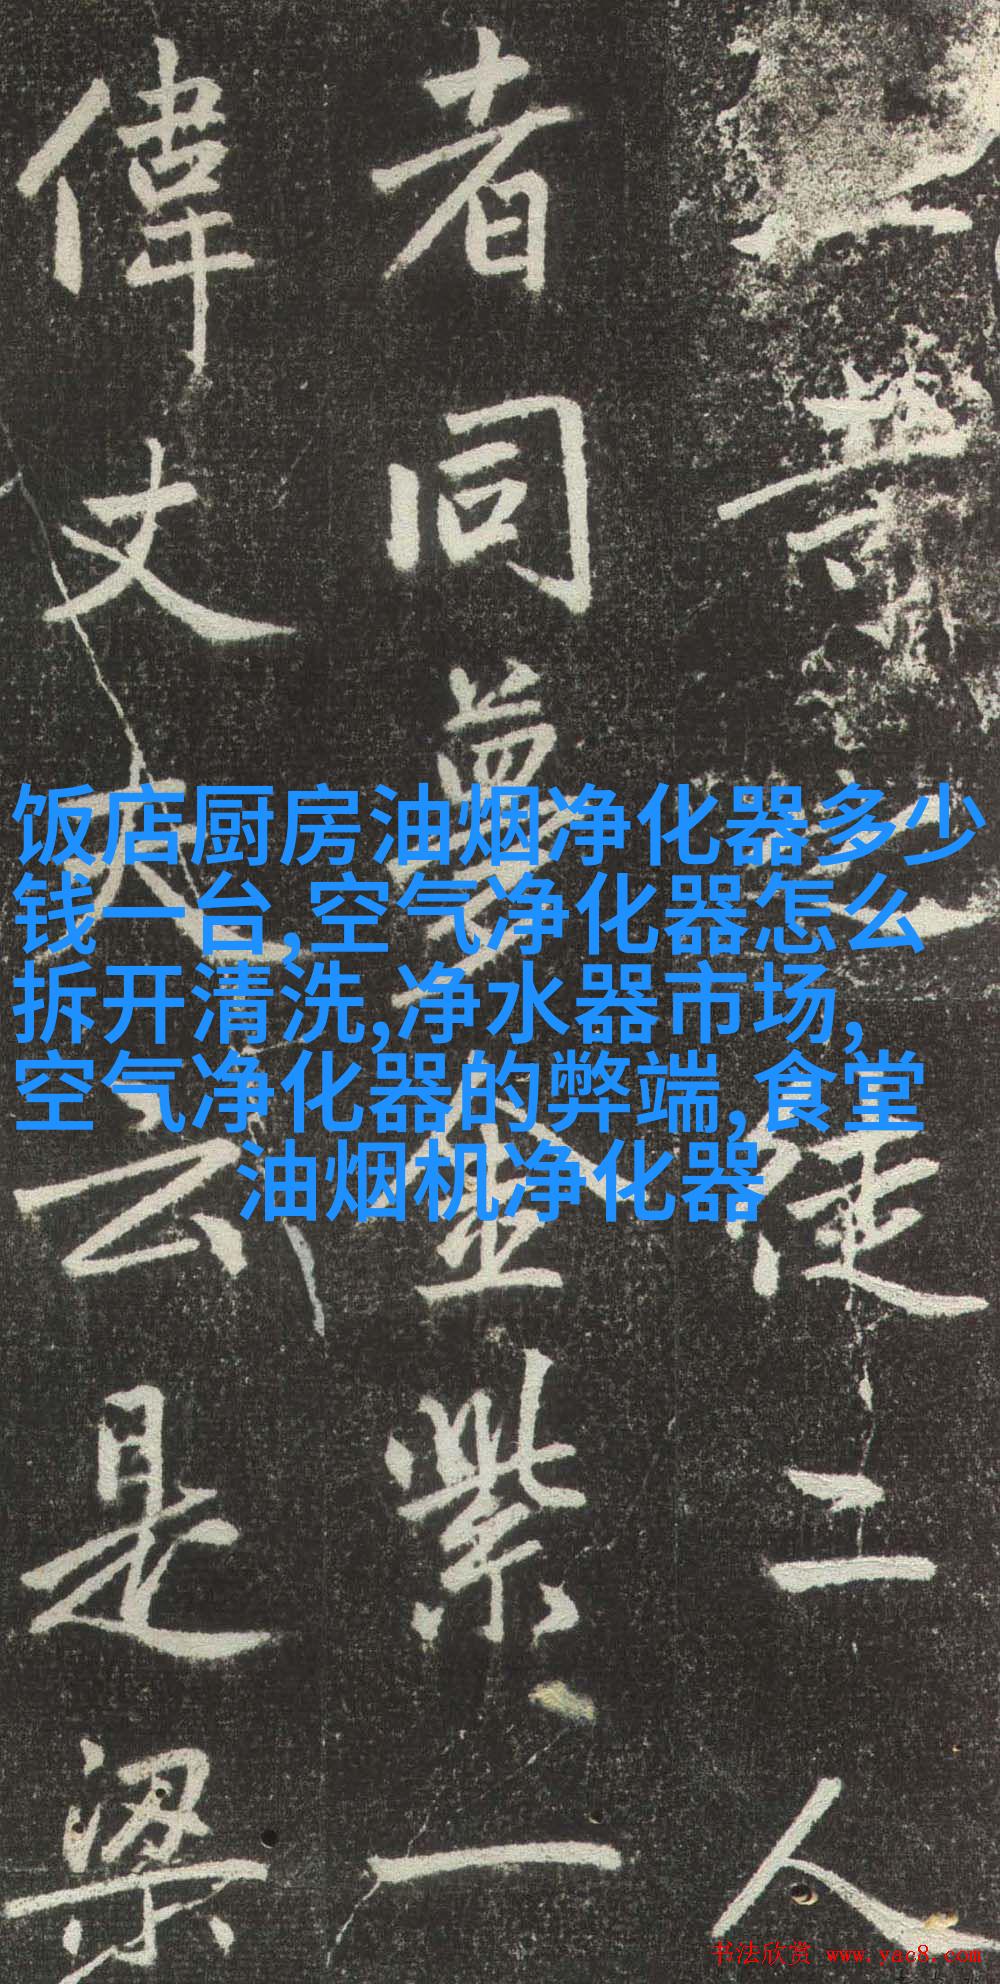 禁
使二人
者同夢金紫一
偉丈夫云是梁
饭店厨房油烟净化器多少
钱一台,空气净化器怎么
拆开清洗,净水器市场,
空气净化器的弊端,食堂
油烟机净化器
书法欣赏 www.yac8.com